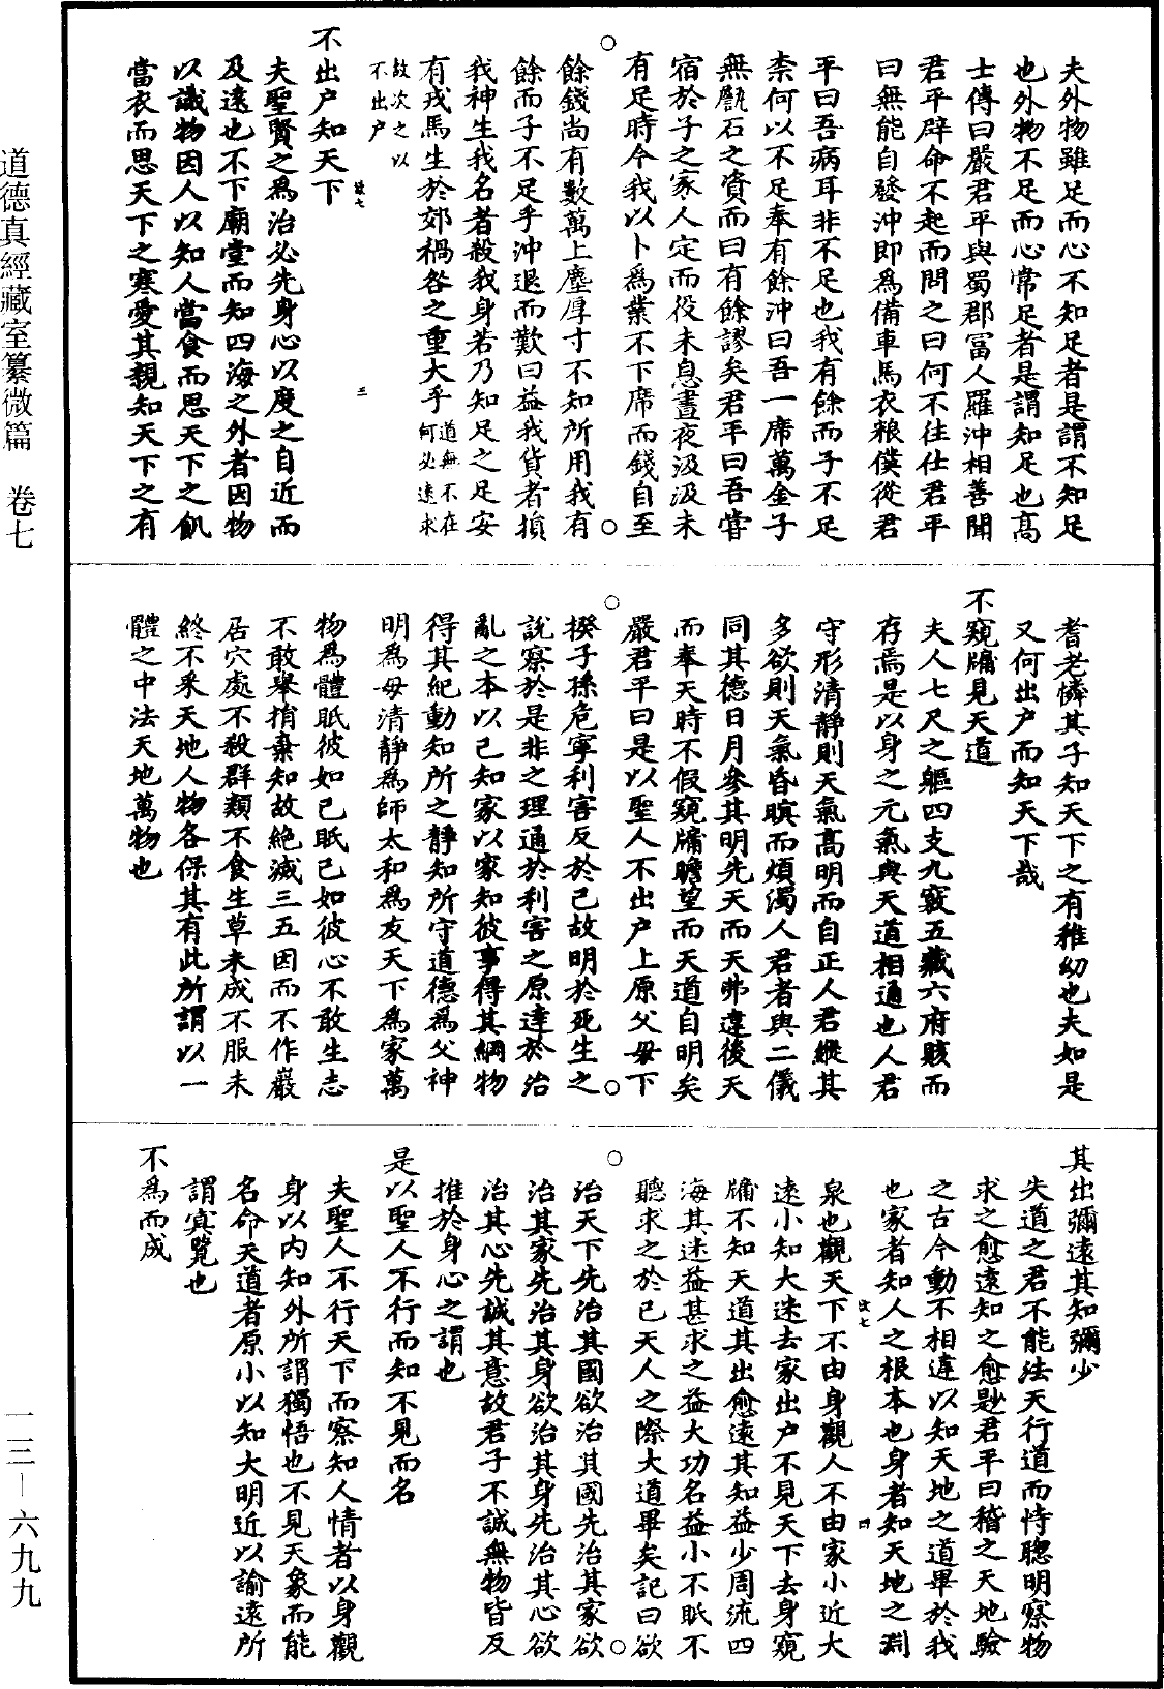 夫外物雖足而心不知足者是謂不知足
也外物不足而心常足者是謂知足也髙
士傳曰嚴君平與蜀郡冨人羅沖相善聞
君平辟命不起而問之曰何不往仕君平
曰無能自發沖即為備車馬衣粮僕從君
平曰吾病耳非不足也我有餘而子不足
柰何以不足奉有餘沖曰吾一席萬金子
無甔石之資而曰有餘謬矣君平曰吾嘗
宿於子之家人定而役未息晝夜汲汲未
有足時今我以卜為業不下席而錢自至
餘錢尚有數萬上塵厚寸不知所用我有
餘而子不足乎沖退而歎曰益我貨者損
我神生我名者殺我身若乃知足之足安
有戎馬生於郊禍咎之重大乎道無不在何必遠求
故次之以不出户
不出户知天下
夫聖賢之為治必先身心以度之自近而
及逺也不下廟堂而知四海之外者因物
以識物因人以知人當食而思天下之飢
當衣而思天下之寒愛其親知天下之有
耆老憐其子知天下之有稚幼也夫如是
又何出户而知天下哉
不窺牖見天道
夫人七尺之軀四支九竅五藏六府賅而
存焉是以身之元氣與天道相通也人君
守形清靜則天氣髙明而自正人君縱其
多欲則天氣昏瞑而煩濁人君者與二儀
同其德日月參其明先天而天弗違後天
而奉天時不假窺牖瞻望而天道自明矣
嚴君平曰是以聖人不出户上原父母下
揆子孫危寧利害反於已故明於死生之
說察於是非之理通於利害之原達於治
亂之本以己知家以家知彼事得其綱物
得其紀動知所之靜知所守道德為父神
明為母清靜為師太和為友天下為家萬
物為體眂彼如已眂已如彼心不敢生志
不敢舉捐棄知故絶滅三五因而不作巖
居穴處不殺群類不食生草未成不服未
終不采天地人物各保其有此所謂以一
體之中法天地萬物也
其出彌遠其知彌少
失道之君不能法天行道而恃聰明察物
求之愈遠知之愈尠君平曰稽之天地驗
之古今動不相違以知天地之道畢於我
也家者知人之根本也身者知天地之淵
泉也觀天下不由身觀人不由家小近大
逺小知大迷去家出户不見天下去身窺
牖不知天道其出愈遠其知益少周流四
海其迷益甚求之益大功名益小不眂不
聽求之於已天人之際大道畢矣記曰欲
治天下先治其國欲治其國先治其家欲
治其家先治其身欲治其身先治其心欲
治其心先誠其意故君子不誠無物皆反
推於身心之謂也
是以聖人不行而知不見而名
夫聖人不行天下而察知人情者以身觀
身以内知外所謂獨悟也不見天象而能
名命天道者原小以知大明近以諭遠所
謂㝠覽也
不為而成
道德真經藏室纂微篇　卷七
一三－六九九